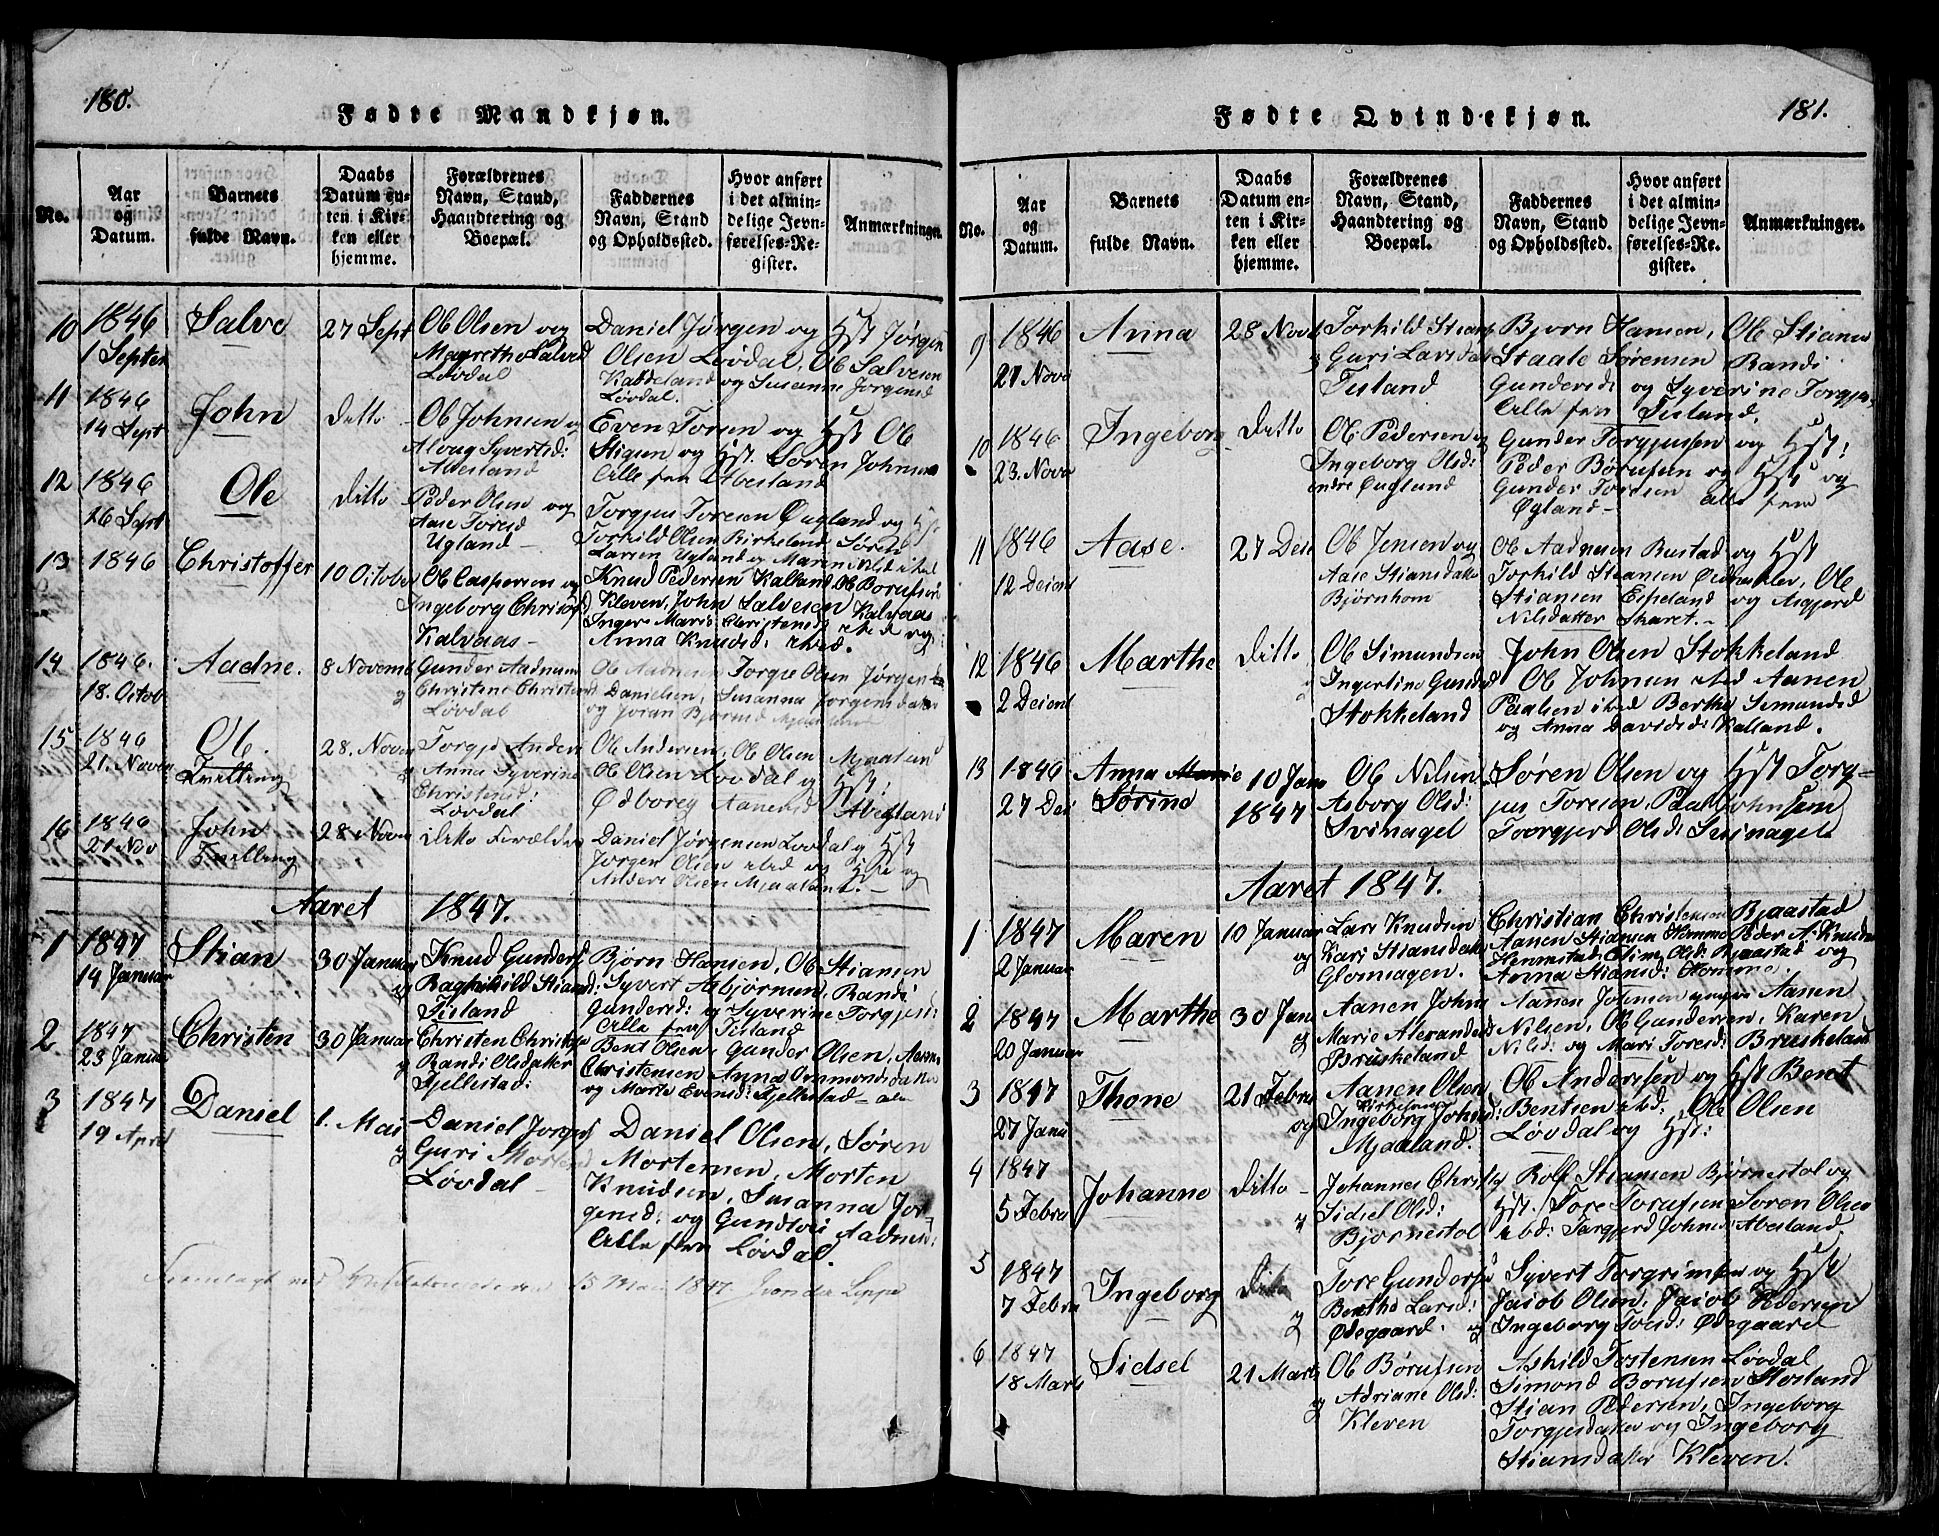 180.
Fødte Mandkjøn.
No.
Aar
og
Datum.
Barnets
fulde Navn.
Daabs
Datum en-
ten i Kir-
ken eller
hjemme.
Forældrenes
Navn, Stand,
Haandtering og
Boepæl.
Faddernes
Navn, Stand
og Opholdssted.
Hvor anført
i det almin-
delige Jevn-
førelses-Re-
gister.
Anmærkninger.
10
1846
1 Septen
Salve
27 Sept
Ob Olsen og
Magrethe Salvesd
Løvdal
Daniel Jørgen og Hst Jørgen
Olsen Løvdal, Ob Salvesen
Kaddeland og Susanne Jørgensd
Løvdal.
11
1846
14 Sept
John
Ditto
Ob Johnsen og
Aloug Syvertsd:
Abesland
Even Torsen og Hst Ob
Stigen og Hst. Søren Johnsen
Alle fra Abesland
12
1846
26 Sept
Ole
Ditto
Peder Olsen og
Aase Toresd
Ugland
Torgjus Toresen Øugland og Hst
Torkild Olsen Birkeland Søren
Larsen Ugland og Maren Olsd ibid
13
1846
Christoffer
10 October
Ob Caspersen og
Ingeborg Christofd
Kalvaas
Knud Pedersen Kalland Ob Borufsen
Kleven, John Salvesen Kalvaas
Inger Maria Christensd ibed og
Anna Knudsd: ibed.
14
1846.
18. Octob
Aadne.
8 Novemb
Gunder Aadnsen
og Christine Christensd
Løvdal
Ob Aadnesen Torgie Olsen Jørgen
Danielsen, Susanna Jørgensdater
og Joran Bjornsd Mjaaland
15
1846
21. Noven
Ob.
Tvilling
28. Noven
Torgje Anders
og Anna Syverine
Christensd:
Løvdal
Ob Andersen, Ob Olsen Mjaaland
Ob Olsen Løvdal og Hst:
Ødborg Aanensd Abesland
16
1846
21 Nov
John
Tvilling
28 Noven
ditto Forælder
Daniel Jørgensen Løvdal og Hst
Jørgen Olsen ibed og Hst og
Anders Olsen Mjaaland.
Aaret 1847.
1
1847
14 Januar
Stian
30 Januar
Knud Gunders
og Ragnhild Stiansd:
Tisland
Bjørn Hansen, Ob Stiansen
Syvert Asbjørnsen, Randi
Gundersd: og Syverine Torgjesd:
Alle fra Tisland
2
1847
23 Januar
Christen
30 Januar
Christen Christens
og Randi Olsdatter
Fjellestad:
Bent Olsen, Gunder Olsen, Aanen
Christensen Anna Ommonds datter
og Marte Evensd: Fjellestad
3
1847
19 April
Daniel
1. Mai
Daniel Jorgens
og Guri Mortensd
Løvdal
Daniel Olsen, Søren
Mortensen, Morten
Knudsen, Susanna Jør
gensd: og Gundvoi Aadnesd:
Alle fra Løvdal.
Fremlagt ved Visitatsen den 15 Mai 1847 von der Lippe
181.
Fødte Qvindekjøn.
No.
Aar
og
Datum.
Barnets
fulde Navn.
Daabs
Datum en-
ten i Kir-
ken eller
hjemme.
Forældrenes
Navn, Stand,
Haandtering og
Boepæl.
Faddernes
Navn, Stand
og Opholdssted.
Hvor anført
i det almin-
delige Jevn-
førelses-Re-
gister.
Anmærkninger.
9
1846
21 Nove
Anna
28 Novb
Torkild Stians
og Guri Larsdat
Tisland
Bjorn Hansen, Ob Stiansen
Staale Sørensen Randi
Gundersd: og Syverine Torgjus
Alle fra Tisland.
10
1846
23. Nove
Ingeborg
Ditto
Ob Pedersen og
Ingeborg Olsd:
indre Øugland
Gunder Torgjussen og Hst:
Peder Børufsen og Hst og
Gunder Toresen alle fra
Øgland
11
1846
12 Decemb
Aase.
27 Dec
Ob Jensen og
Aase Stiansdatter
Bjørnhom
Ob Aadnesen Rustad og Hst
Torkild Stiansen Ødeknæblev, Ole
Stiansen Eiseland og Asgjerd
Nilsdatter Skaret.
12
1846
2 Decemb
Marthe
Ditto
Ob Simundsen
og Ingertine Gundsd
Stokkeland
John Olsen Stokkeland
Ob Johnsen ibed Aanen
Paalsen ibed Berthe Simundsd
og Anna Davidsd: Kalland.
13
1846
27 Dec
Anna Marie
Sørine
10 Jan
1847
Ob Nilsen
Asborg Olsd:
Svinagel
Søren Olsen og Hst Torg-
jus Toresen, Paal Johnsen
Torgjerd Olsd: Svinagel
Aaret 1847.
1
1847
2 Januar
Maren
10 Januar
Lars Knudsen
og Kari Stiansdatter
Glomsagen.
Christian Christensen Bjaastad
Aanen Stiansen Homme Peder A: Knudsen
Henmestad Eline Olsd: Bjaastad og
Anna Stiansd: Homme.
2
1847
20 Januar
Marthe
30 Jan
Aanen Johns
og Marie Alexandersd
Bruskeland
Aanen Johnsen yngre Aanen
Nilsen, Ob Gundersen, Karen
Nilsd: og Mari Toresd: Bruskeland
3
1847
27 Janu
Thone
21 Febru
Aanen Olsen
Birkeland
og Ingeborg Johnsd:
Mjaaland.
Ob Andersen og Hst Bent
Bentsen ibd: Ole Olsen
Løvdal og Hst:
4
1847
5 Febru
Johanne
Ditto
Johannes Christ
og Sidsel Olsd:
Bjornestøl
Rolf Stiansen Bjørnestøl og
Hst. Tore Torufsen Soren Olsen
ibd: Torgjerd Johnsd: Abesland.
5
1847
7 Febru
Ingeborg
Ditto
Tore Gunders
og Berthe Larsd:
Ødegaard.
Syvert Torgrimsen og Hst
Jacob Olsen, Jacob Pedersen
og Ingeborg Toresd: Ødegaard
6
1847
18 Marts
Sidsel
21 Marts
Ob Børufsen
og Adriane Olsd:
Kleven
Askild Tostensen Løvdal
Simond Borufsen Stosland
Stian Pedersen, Ingeborg
Torgjersdatter og Ingeborg
Stiansdatter Kleven.